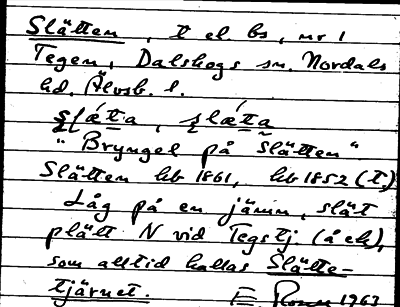 Slätten, t el. bs, nr 1
Tegen, Dalskogs sn. Nordals
hd. Älvsb. l.
ʂlǽt̲a, ʂlæ̀t̲a
"Bryngel på Slätten"
Slätten hb 1861, hb 1852 (t.)
Låg på en jämn, slät
plätt N vid Tegstj. (å ek),
som alltid kallas Slätte-
tjärnet.
1963